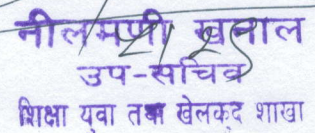 नीलमणी खनाल
उप-सचिव
शिक्षा युवा तथा खेलकुद शाखा